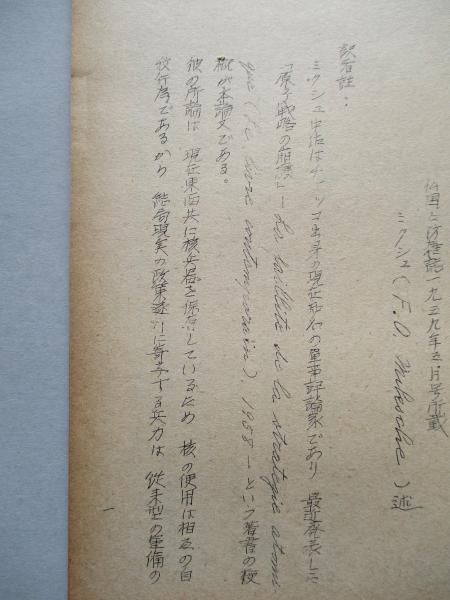 仏国々防雑誌一九五九年五月号所載
ミクシュ(F.O. Miksche)述
訳者註:
ミクシュ中佐はチェッコ出身の現在知名の軍事評論家であり 最近発表した
「原子戦略の崩潰」— La faillite de la strategie atomi
que (Le livre contemporain). 1958 — という著書の梗
概が本論文である。
彼の所論は 現在東西共に核兵器を保有しているため 核の使用は相互の自
殺行為であるから 結局現実の政策遂行に寄与する兵力は 従来型の軍備の
一